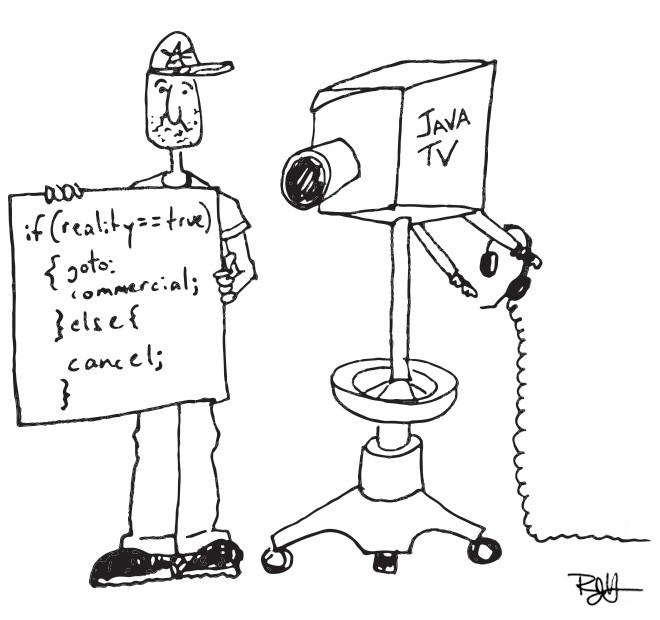 if (reality==true)
{ goto:
commercial;
} else {
cancel;
}
JAVA
TV